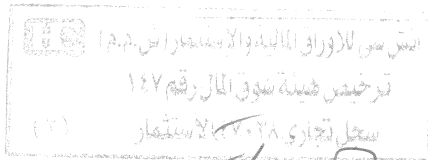 اتش سى للاوراق المالية والاستثمار (ش.م.م)
ترخيص هيئة سوق المال رقم ١٤٧
سجل تجارى الاستثمار (٢)